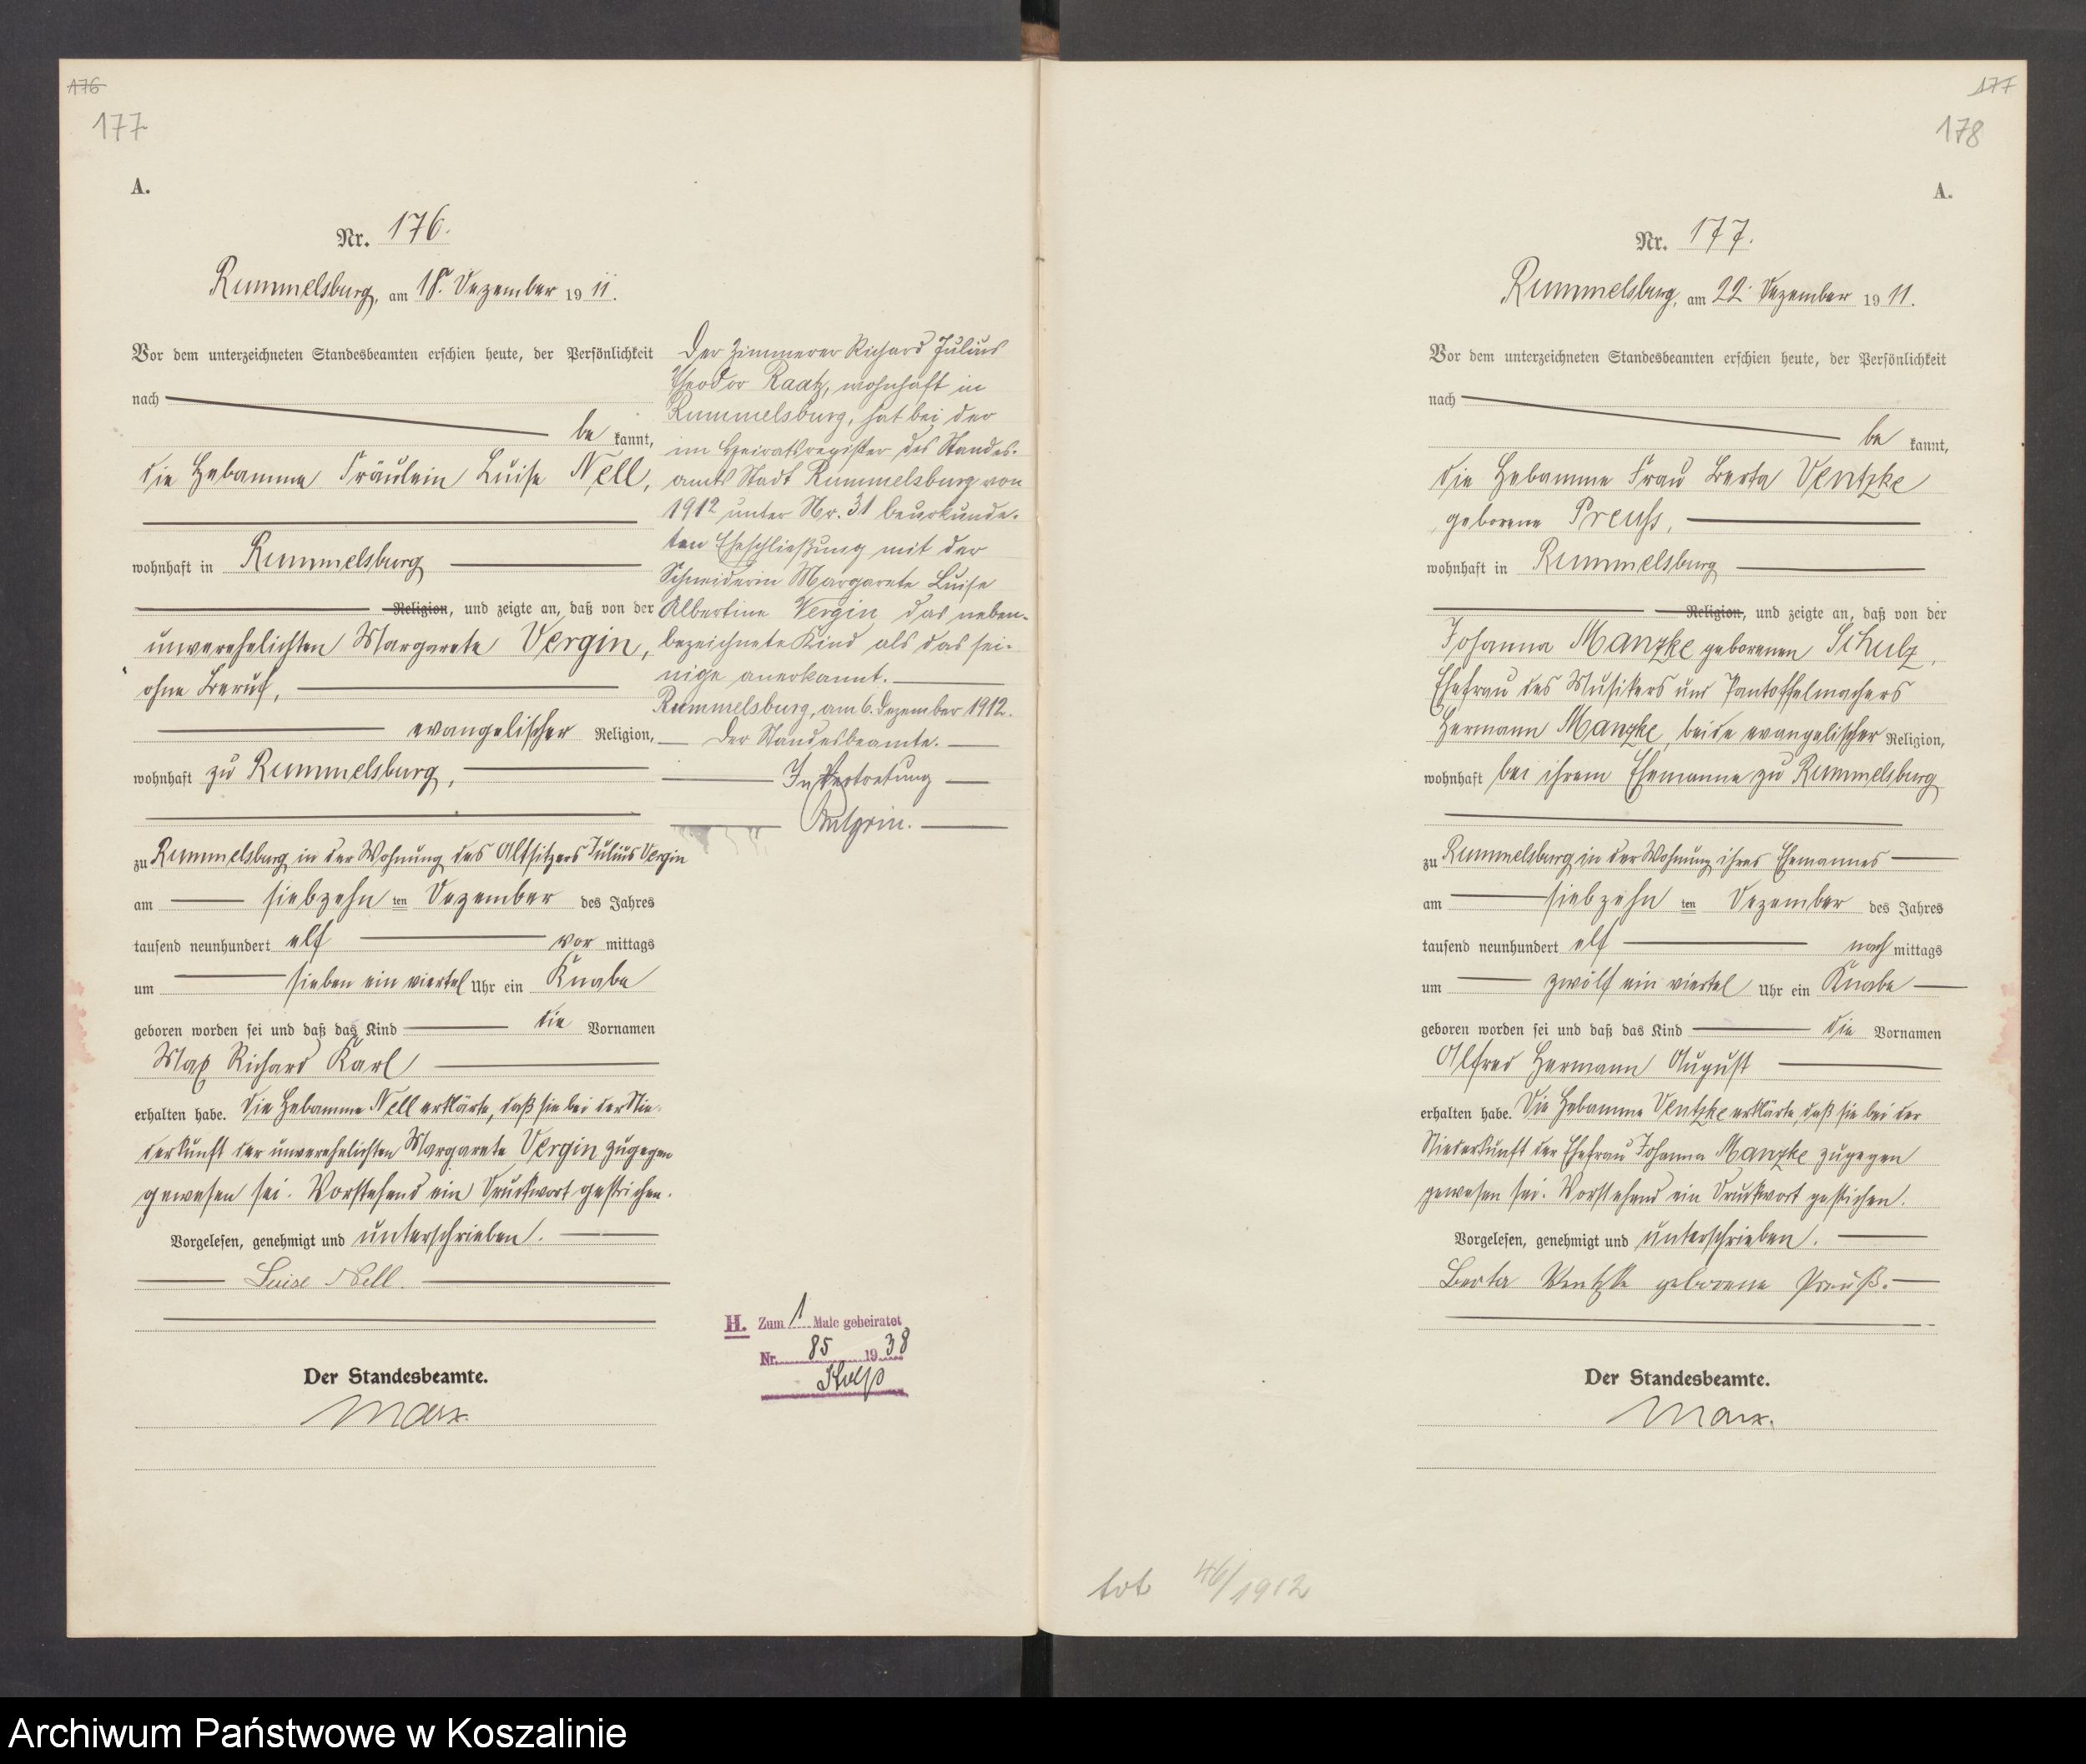 176
177
A.
Nr. 176.
Rummelsburg, am 18. Dezember 1911.
Vor dem unterzeichneten Standesbeamten erschien heute, der Persönlichkeit
nach
be kannt,
die Hebamme Fräulein Luise Nell,
wohnhaft in Rummelsburg
Religion, und zeigte an, daß von der
unverehelichten Margarete Vergin,
ohne Beruf,
evangelischer Religion,
wohnhaft zu Rummelsburg,
zu Rummelsburg in der Wohnung des Altsitzers Julius Vergin
am siebzehn ten Dezember des Jahres
tausend neunhundert elf vor mittags
um sieben ein viertel Uhr ein Knabe
geboren worden sei und daß das Kind die Vornamen
Max Richard Karl
erhalten habe. Die Hebamme Nell erklärte, daß sie bei der Nie-
derkunft der unverehelichten Margarete Vergin zugegen
gewesen sei. Vorstehend ein Druckwort gestrichen.
Vorgelesen, genehmigt und unterschrieben.
Luise Nell.
Der Standesbeamte.
Marx.
Der Zimmerer Richard Julius
Theodor Raatz, wohnhaft in
Rummelsburg, hat bei der
im Heiratsregister des Standes-
amts Stadt Rummelsburg von
1912 unter Nr. 31 beurkunde-
ten Eheschließung mit der
Schneiderin Margarete Luise
Albertine Vergin das neben-
bezeichnete Kind als das sei-
nige anerkannt.
Rummelsburg, am 6. Dezember 1912.
Der Standesbeamte.
In Vertretung
H. Zum 1 Male geheiratet
Nr. 85 1938
Stolp
177
178
A.
Nr. 177.
Rummelsburg, am 22. Dezember 1911.
Vor dem unterzeichneten Standesbeamten erschien heute, der Persönlichkeit
nach
be kannt,
die Hebamme Frau Berta Ventzke
geborene Preuss,
wohnhaft in Rummelsburg
Religion, und zeigte an, daß von der
Johanna Manzke geborenen Schulz,
Ehefrau des Musikers und Pantoffelmachers
Hermann Manzke, beide evangelischer Religion,
wohnhaft bei ihrem Ehemanne zu Rummelsburg
zu Rummelsburg in der Wohnung ihres Ehemannes
am siebzehn ten Dezember des Jahres
tausend neunhundert elf nach mittags
um zwölf ein viertel Uhr ein Knabe
geboren worden sei und daß das Kind die Vornamen
Alfred Hermann August
erhalten habe. Die Hebamme Ventzke erklärte, daß sie bei der
Niederkunft der Ehefrau Johanna Manzke zugegen
gewesen sei. Vorstehend ein Druckwort gestrichen.
Vorgelesen, genehmigt und unterschrieben.
Berta Ventzke geborene Preuß.
Der Standesbeamte.
Marx.
tot 46/1912
Archiwum Państwowe w Koszalinie